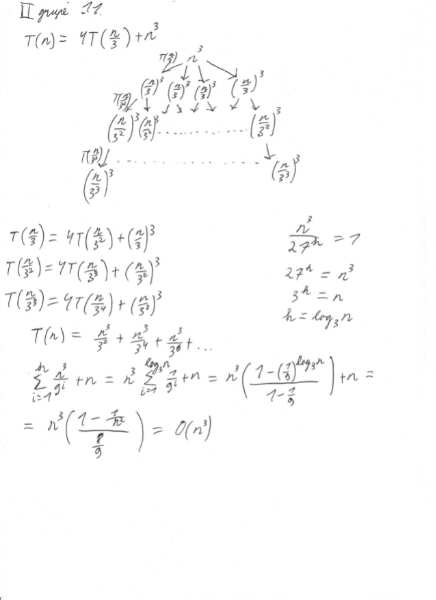 II grupė 11.
T(n) = 4T(n/3) + n^3
T(n) n^3
T(n/3) (n/3)^3 (n/3)^3 (n/3)^3 (n/3)^3
(n/3^2)^3 (n/3^2)^3 ............... (n/3^2)^3
(n/3^3)^3 ............... (n/3^3)^3
T(n/3) = 4T(n/3^2) + (n/3)^3
T(n/3^2) = 4T(n/3^3) + (n/3^2)^3
T(n/3^3) = 4T(n/3^4) + (n/3^3)^3
n^3/27^h = 1
27^h = n^3
3^h = n
h = log_3 n
T(n) = n^3/3^2 + n^3/3^4 + n^3/3^6 + ...
∑_{i=1}^{h} n^3/9^i + n = n^3 ∑_{i=1}^{log_3 n} 1/9^i + n = n^3 ((1-(1/9)^{log_3 n})/(1-1/9)) + n =
= n^3 ((1 - 1/n^2)/(8/9)) = O(n^3)